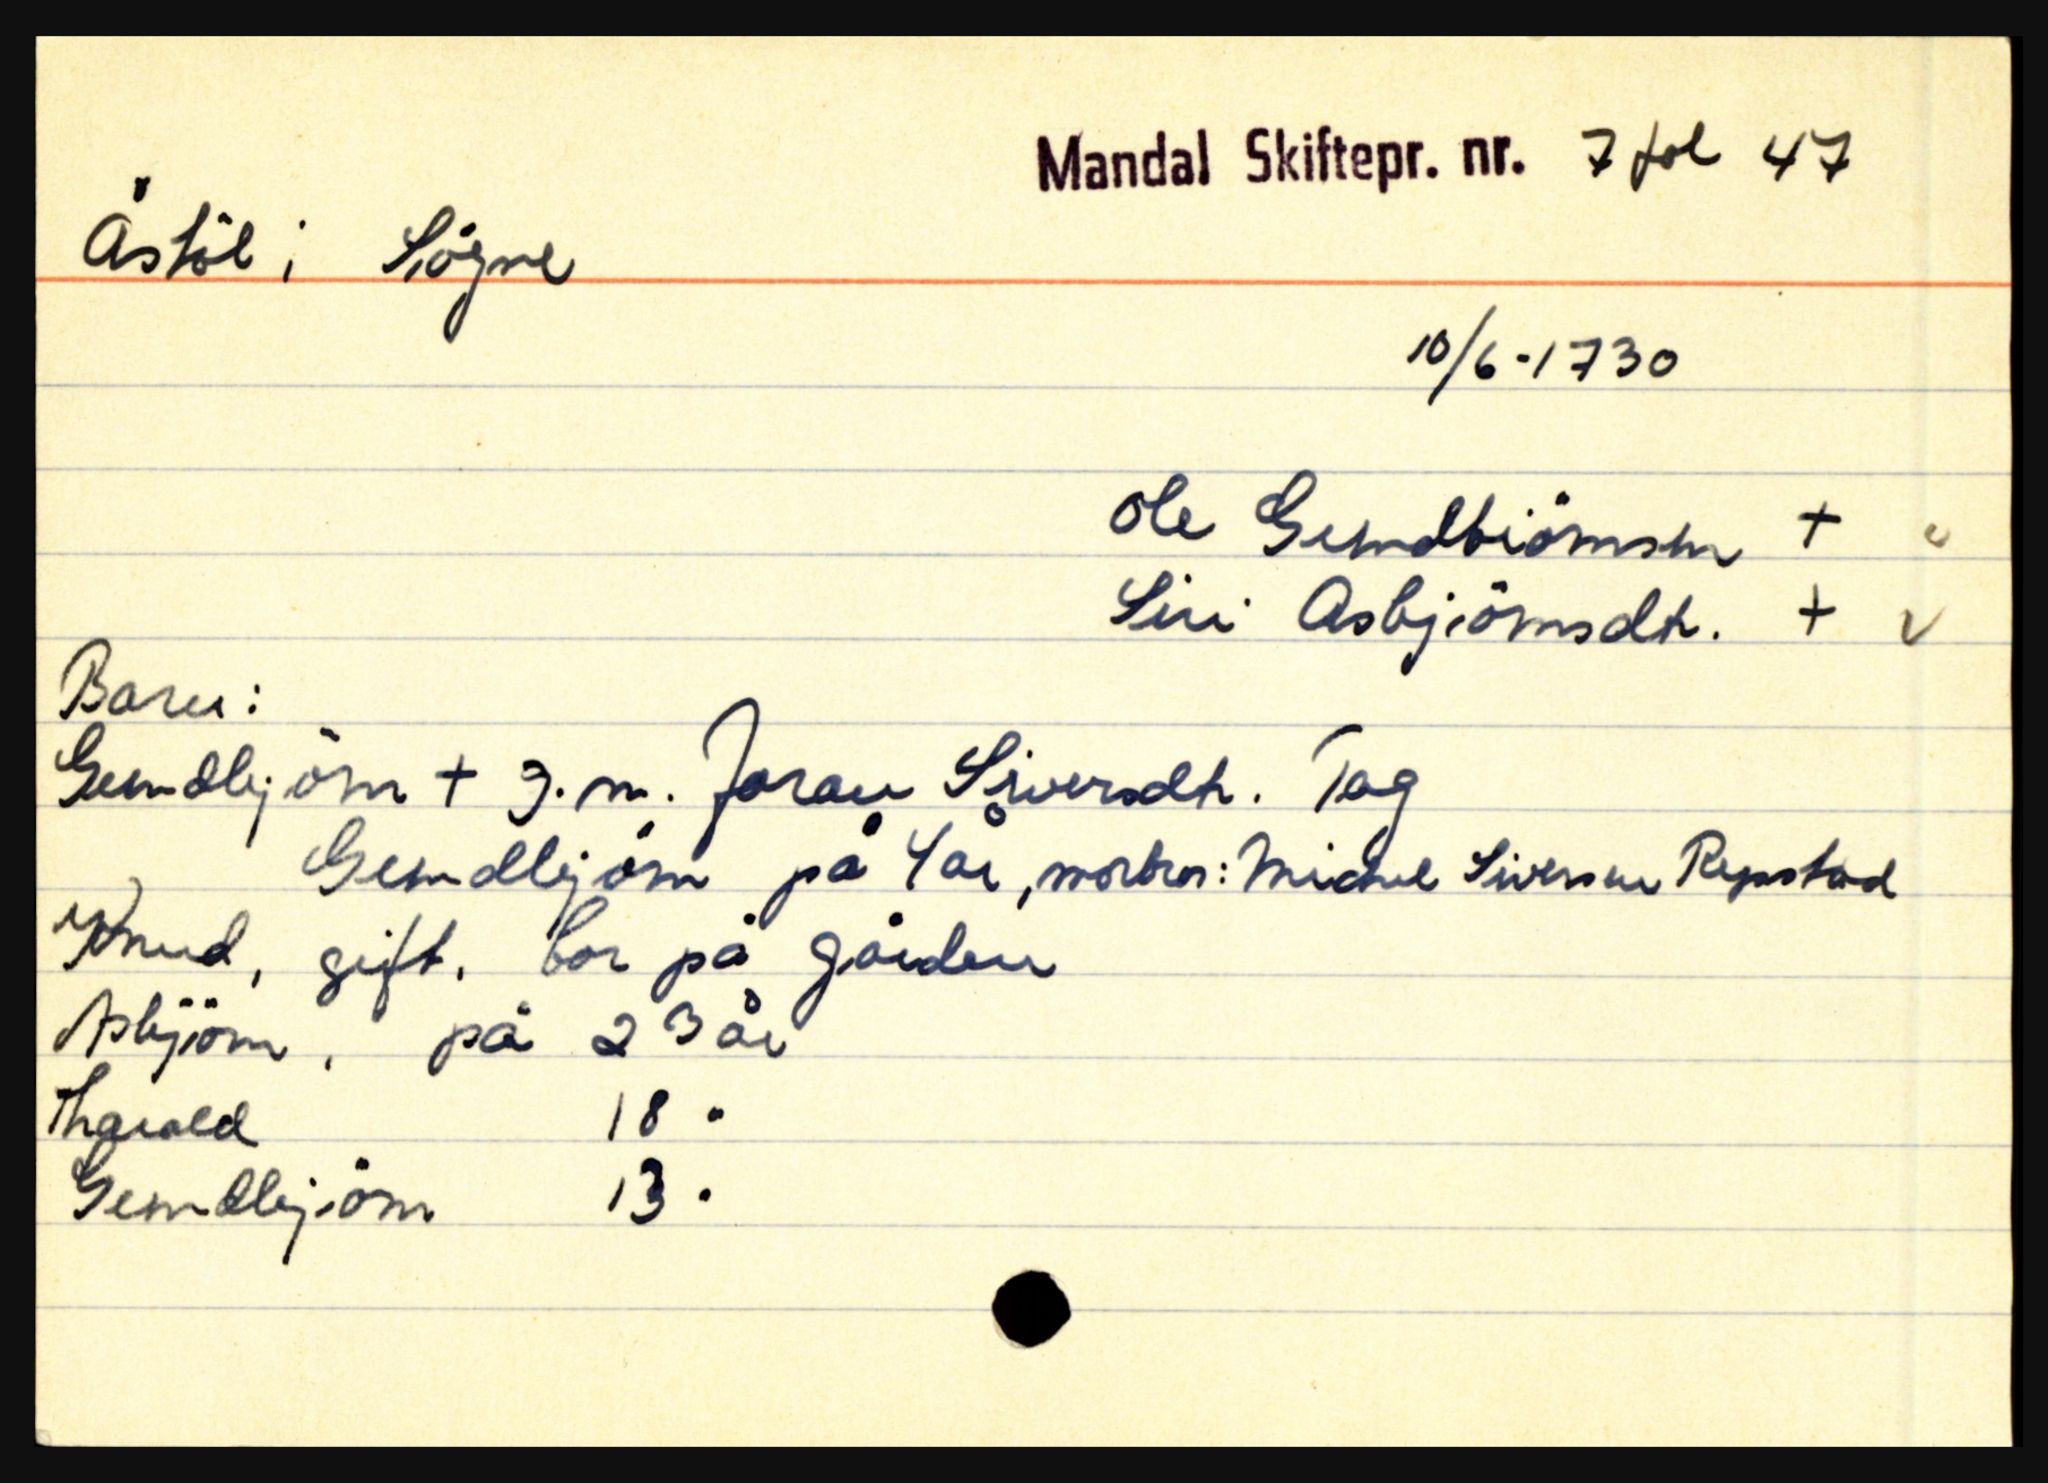 Mandal Skiftepr. nr. 7 fol 47
Åstöl i Sögne
10/6-1730
Ole Gundbiörnsen +
Siri Asbjiörnsdtr. +
Barn:
Gundbjörn + g. m. Joran Siversdtr. Tag
Gundbjörn på 4 år, morbror: Michel Siversen Repstad
Knud, gift, bor på gården
Asbjiörn, på 23 år
Tharald 18 "
Gundbjiörn 13 "